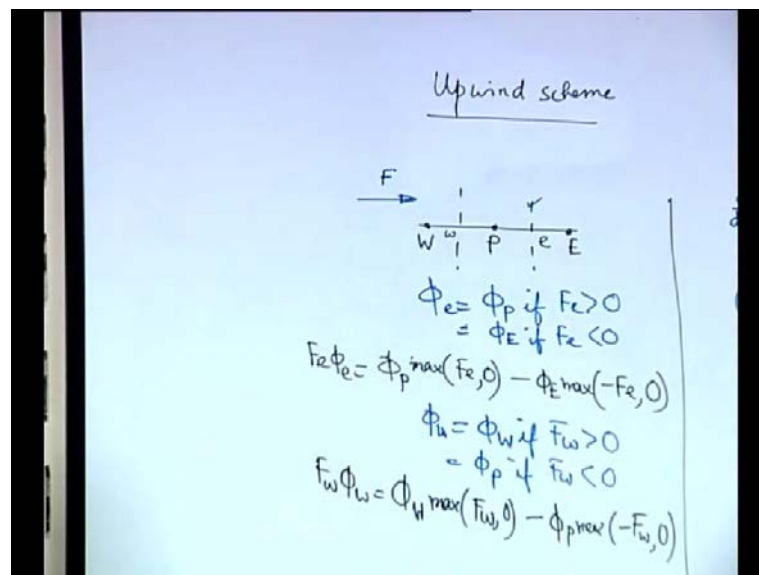 Upwind scheme
F
W w P e E
Φe = Φp if Fe>0
= ΦE if Fe<0
FeΦe = Φp max(Fe,0) − ΦE max(−Fe,0)
Φw = ΦW if Fw>0
= Φp if Fw<0
FwΦw = ΦW max(Fw,0) − Φp max(−Fw,0)